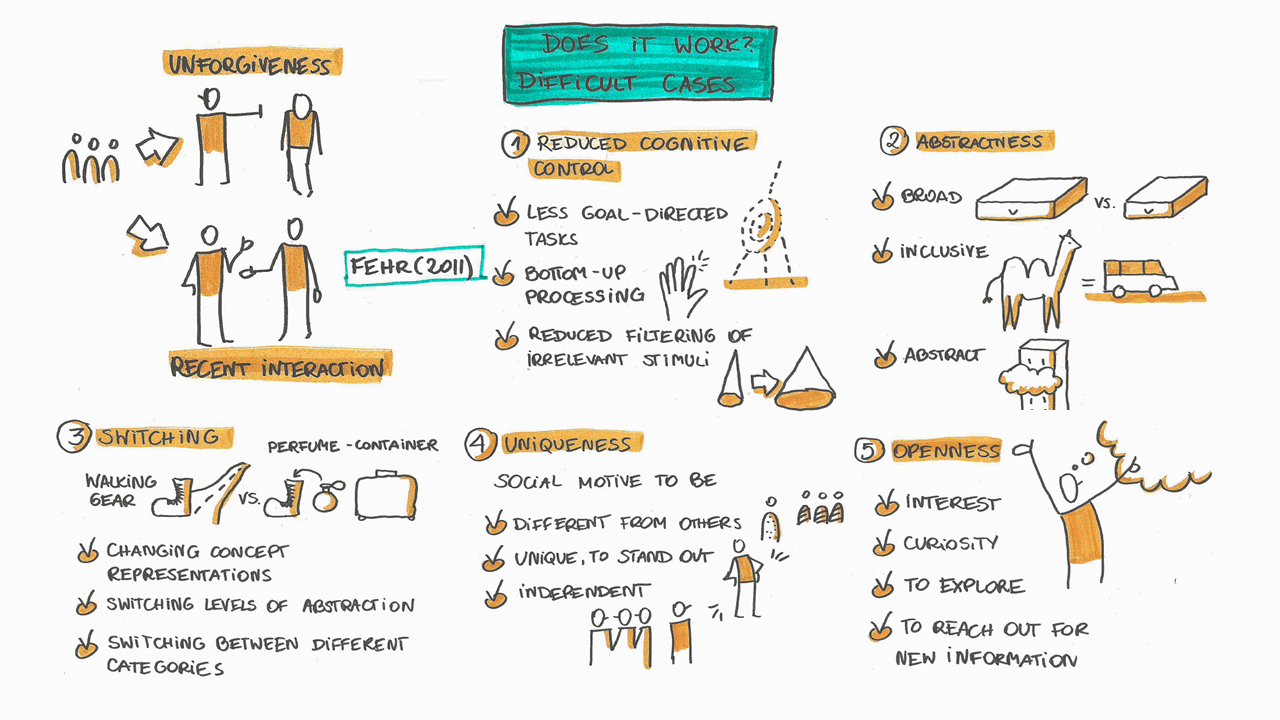 DOES IT WORK?
DIFFICULT CASES
UNFORGIVENESS
FEHR (2011)
RECENT INTERACTION
1 REDUCED COGNITIVE
CONTROL
LESS GOAL-DIRECTED
TASKS
BOTTOM-UP
PROCESSING
REDUCED FILTERING OF
IRRELEVANT STIMULI
2 ABSTRACTNESS
BROAD
VS.
INCLUSIVE
=
ABSTRACT
3 SWITCHING
PERFUME-CONTAINER
WALKING
GEAR
VS.
CHANGING CONCEPT
REPRESENTATIONS
SWITCHING LEVELS OF ABSTRACTION
SWITCHING BETWEEN DIFFERENT
CATEGORIES
4 UNIQUENESS
SOCIAL MOTIVE TO BE
DIFFERENT FROM OTHERS
UNIQUE, TO STAND OUT
INDEPENDENT
5 OPENNESS
INTEREST
CURIOSITY
TO EXPLORE
TO REACH OUT FOR
NEW INFORMATION